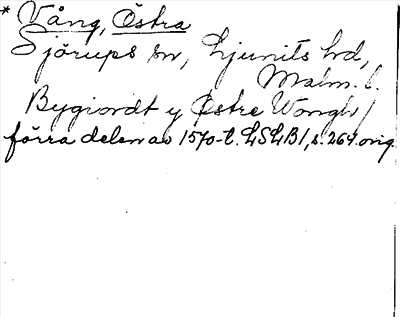 * Vång, Östra
Sjörups sn, Ljunits hd,
Malm. l.
Bygiordt y Østre Wongh /
förra delen av 1570-t. LSLB 1, s. 264. orig.